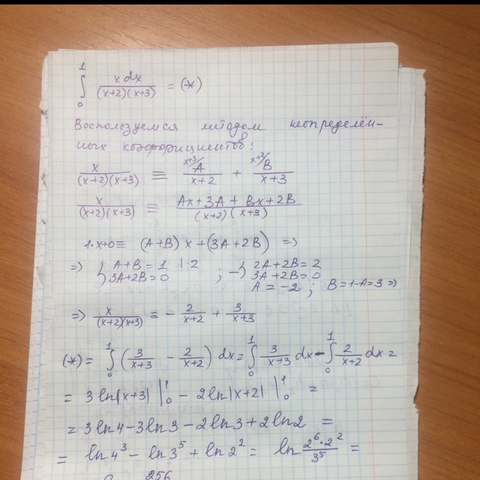 ∫₀¹ x dx / (x+2)(x+3) = (*)
Воспользуемся методом неопределён-
ных коэффициентов:
x / (x+2)(x+3) ≡ ˣ⁺³⁄ A / x+2 + ˣ⁺²⁄ B / x+3
x / (x+2)(x+3) ≡ Ax+3A+Bx+2B / (x+2)(x+3)
1·x+0 ≡ (A+B)x+(3A+2B) ⇒
⇒ { A+B=1 |·2 ; −{ 2A+2B=2
3A+2B=0 3A+2B=0
A=-2; B=1-A=3 ⇒
⇒ x / (x+2)(x+3) = - 2 / x+2 + 3 / x+3
(*) = ∫₀¹ (3 / x+3 - 2 / x+2) dx = ∫₀¹ 3 / x+3 dx - ∫₀¹ 2 / x+2 dx =
= 3 ln|x+3| |₀¹ - 2 ln|x+2| |₀¹ =
= 3 ln4 - 3 ln3 - 2 ln3 + 2 ln2 =
= ln4³ - ln3⁵ + ln2² = ln 2⁶·2² / 3⁵ =
256